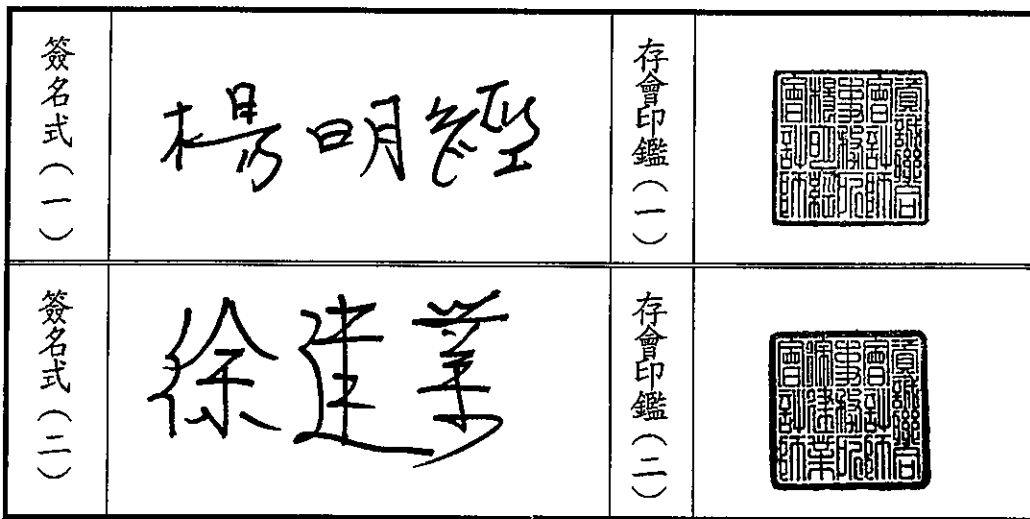 簽名式(一)
楊明經
存會印鑑(一)
資誠聯合
會計師
事務所
楊明經
會計師
簽名式(二)
徐建業
存會印鑑(二)
資誠聯合
會計師
事務所
徐建業
會計師